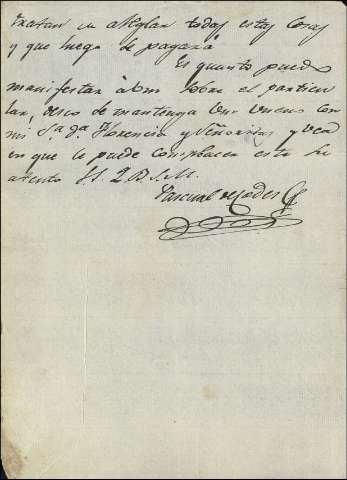 tratan en arreglar todas estas cosas
y que luego se pagará
Es quanto puedo
manifestar á Vm sobre el particu
lar, deseo se mantenga Vm bueno con
mi Sª Dª Florencia y Señoritas y vea
en que le puede complacer este su
atento S. S. Q. B. S. M.
Pascual de